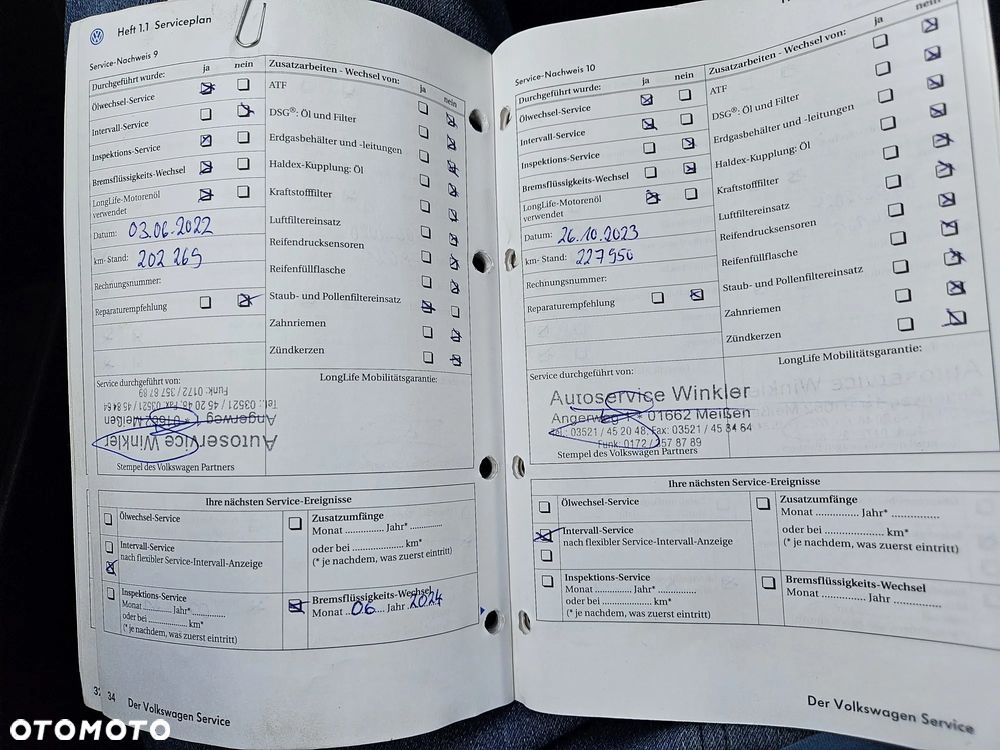 Heft 1.1 Serviceplan
Service-Nachweis 9
Durchgeführt wurde: ja nein
Ölwechsel-Service
Intervall-Service
Inspektions-Service
Bremsflüssigkeits-Wechsel
LongLife-Motorenöl
verwendet
Datum: 03.06.2022
km- Stand: 202 269
Rechnungsnummer:
Reparaturempfehlung
Zusatzarbeiten - Wechsel von: ja nein
ATF
DSG®: Öl und Filter
Erdgasbehälter und -leitungen
Haldex-Kupplung: Öl
Kraftstofffilter
Luftfiltereinsatz
Reifendrucksensoren
Reifenfüllflasche
Staub- und Pollenfiltereinsatz
Zahnriemen
Zündkerzen
Service durchgeführt von:
Autoservice Winkler
Angerweg 1 * 01662 Meißen
Tel.: 03521 / 45 20 48, Fax: 03521 / 45 84 64
Funk: 0172 / 357 87 89
Stempel des Volkswagen Partners
LongLife Mobilitätsgarantie:
Ihre nächsten Service-Ereignisse
Ölwechsel-Service
Intervall-Service
nach flexibler Service-Intervall-Anzeige
Inspektions-Service
Monat ............ Jahr* ............
oder bei .................... km*
(* je nachdem, was zuerst eintritt)
Zusatzumfänge
Monat ............... Jahr* ............
oder bei .................... km*
(* je nachdem, was zuerst eintritt)
Bremsflüssigkeits-Wechsel
Monat ..06.... Jahr 2024
34
Der Volkswagen Service
Service-Nachweis 10
Durchgeführt wurde: ja nein
Ölwechsel-Service
Intervall-Service
Inspektions-Service
Bremsflüssigkeits-Wechsel
LongLife-Motorenöl
verwendet
Datum: 26.10.2023
km- Stand: 227950
Rechnungsnummer:
Reparaturempfehlung
Zusatzarbeiten - Wechsel von: ja nein
ATF
DSG®: Öl und Filter
Erdgasbehälter und -leitungen
Haldex-Kupplung: Öl
Kraftstofffilter
Luftfiltereinsatz
Reifendrucksensoren
Reifenfüllflasche
Staub- und Pollenfiltereinsatz
Zahnriemen
Zündkerzen
Service durchgeführt von:
Autoservice Winkler
Angerweg 1 * 01662 Meißen
Tel.: 03521 / 45 20 48, Fax: 03521 / 45 84 64
Funk: 0172 / 357 87 89
Stempel des Volkswagen Partners
LongLife Mobilitätsgarantie:
Ihre nächsten Service-Ereignisse
Ölwechsel-Service
Intervall-Service
nach flexibler Service-Intervall-Anzeige
Inspektions-Service
Monat ............ Jahr* ............
oder bei .................... km*
(* je nachdem, was zuerst eintritt)
Zusatzumfänge
Monat ............... Jahr* ...............
oder bei ........................ km*
(* je nachdem, was zuerst eintritt)
Bremsflüssigkeits-Wechsel
Monat ............... Jahr ...............
Der Volkswagen Service
OTOMOTO